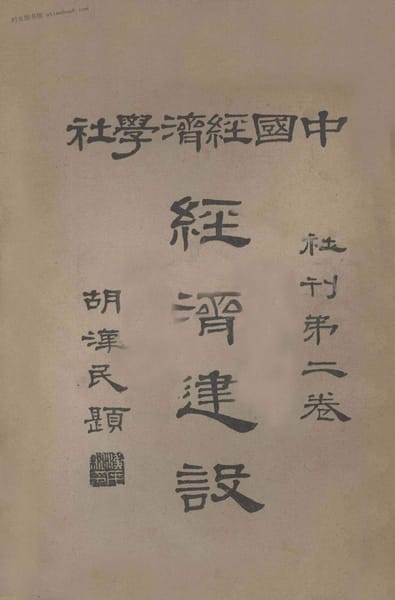 中國經濟學社
社刊第二卷
經濟建設
胡漢民題